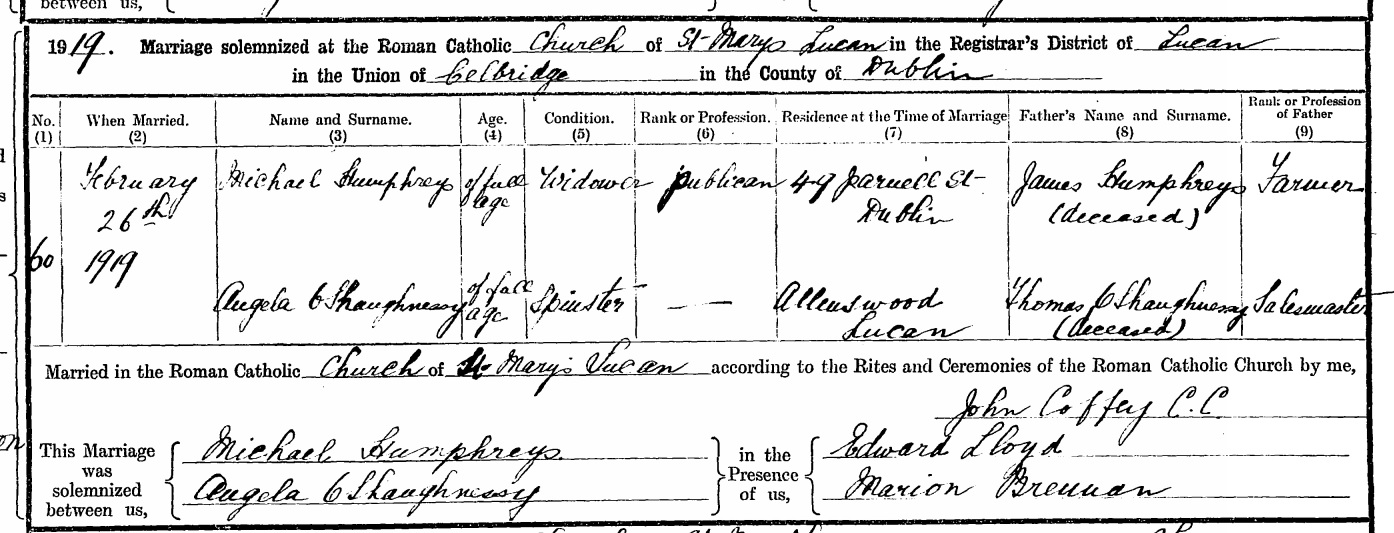 between us,
1919. Marriage solemnized at the Roman Catholic Church of St Marys Lucan in the Registrar's District of Lucan
in the Union of Celbridge in the County of Dublin
No. (1) When Married. (2) Name and Surname. (3) Age. (4) Condition. (5) Rank or Profession. (6) Residence at the Time of Marriage (7) Father's Name and Surname. (8) Rank or Profession of Father (9)
60 February 26th 1919
Michael Humphreys of full age Widower publican 49 Parnell St Dublin James Humphreys (deceased) Farmer
Angela O'Shaughnessy of full age Spinster — Allenswood Lucan Thomas O'Shaughnessy (deceased) Salesmaster
Married in the Roman Catholic Church of St Mary's Lucan according to the Rites and Ceremonies of the Roman Catholic Church by me,
John Coffey C.C.
This Marriage was solemnized between us,
Michael Humphreys
Angela O'Shaughnessy
in the Presence of us,
Edward Lloyd
Marion Brennan